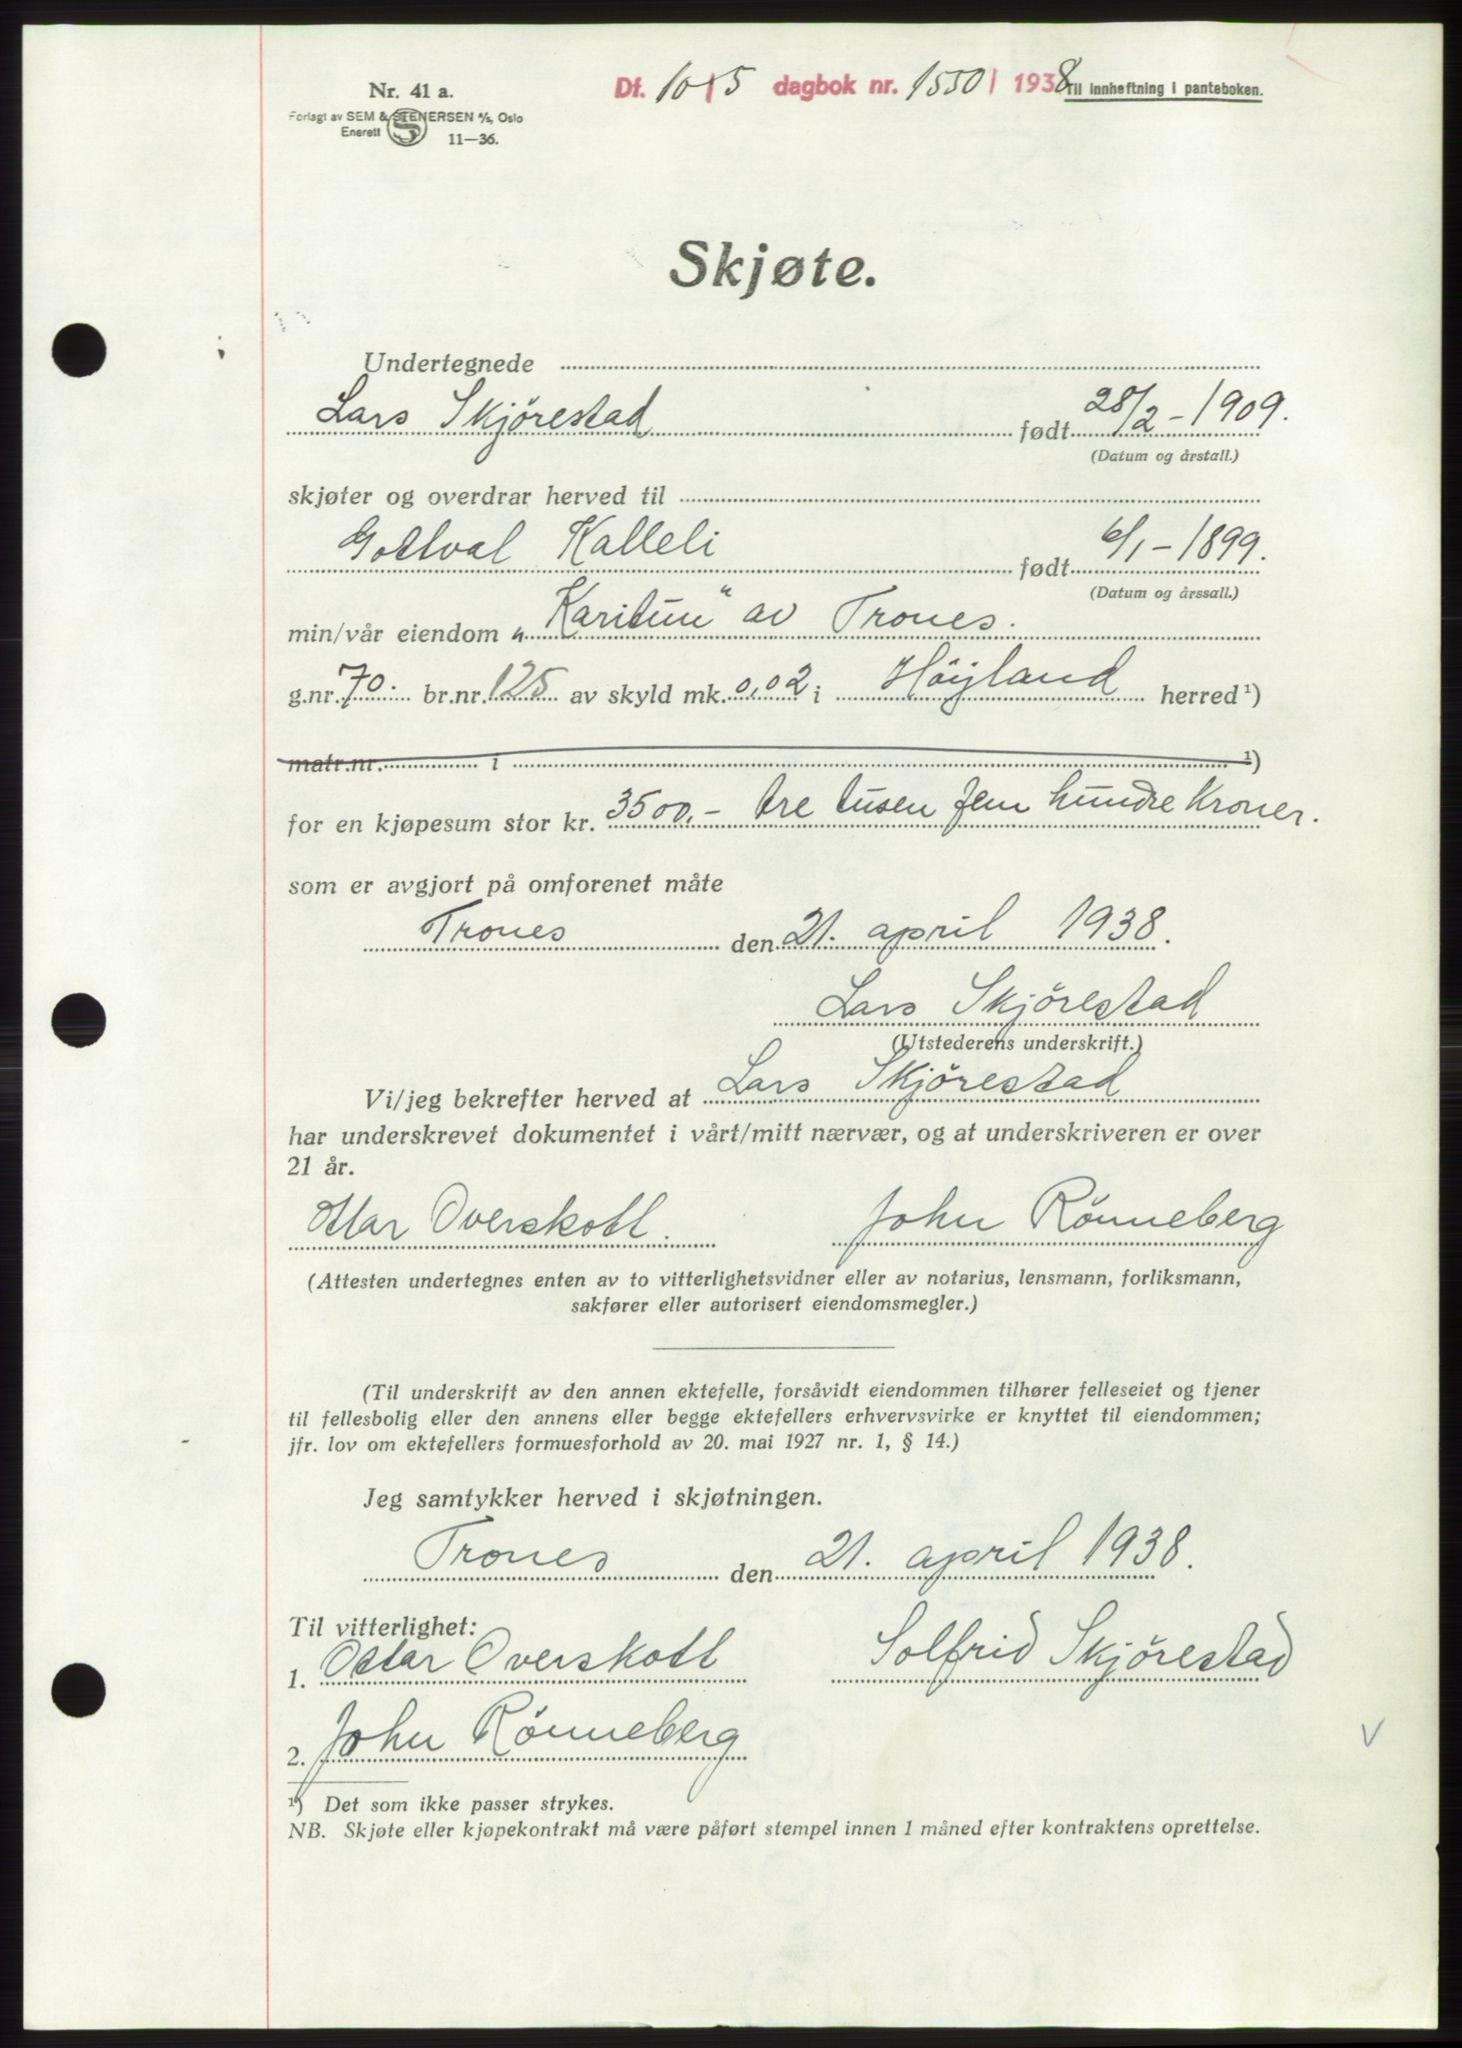 Nr. 41 a.
Df. 10/5 dagbok nr. 1550 / 1938
Til innheftning i panteboken.
Forlagt av SEM & STENERSEN A/S, Oslo
Enerett S 11—36.
Skjøte.
Undertegnede
Lars Skjörestad født 28/2 - 1909.
(Datum og årstall.)
skjøter og overdrar herved til
Gottval Kalleli født 6/1 - 1899.
(Datum og årssall.)
min/vår eiendom „Karitun" av Trones.
g.nr. 70. br.nr. 125 av skyld mk. 0,02 i Höyland herred ¹)
matr.nr. i ¹)
for en kjøpesum stor kr. 3500,- tre tusen fem hundre Kroner.
som er avgjort på omforenet måte
Trones den 21. april 1938.
Lars Skjörestad
(Utstederens underskrift.)
Vi/jeg bekrefter herved at Lars Skjörestad
har underskrevet dokumentet i vårt/mitt nærvær, og at underskriveren er over
21 år.
Ottar Overskott. John Rönneberg
(Attesten undertegnes enten av to vitterlighetsvidner eller av notarius, lensmann, forliksmann,
sakfører eller autorisert eiendomsmegler.)
(Til underskrift av den annen ektefelle, forsåvidt eiendommen tilhører felleseiet og tjener
til fellesbolig eller den annens eller begge ektefellers erhvervsvirke er knyttet til eiendommen;
jfr. lov om ektefellers formuesforhold av 20. mai 1927 nr. 1, § 14.)
Jeg samtykker herved i skjøtningen.
Trones den 21. april 1938.
Til vitterlighet:
1. Ottar Overskott Solfrid Skjörestad
2. John Rönneberg
¹) Det som ikke passer strykes.
NB. Skjøte eller kjøpekontrakt må være påført stempel innen 1 måned efter kontraktens oprettelse.